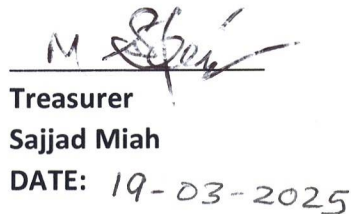 M
Treasurer
Sajjad Miah
DATE: 19-03-2025